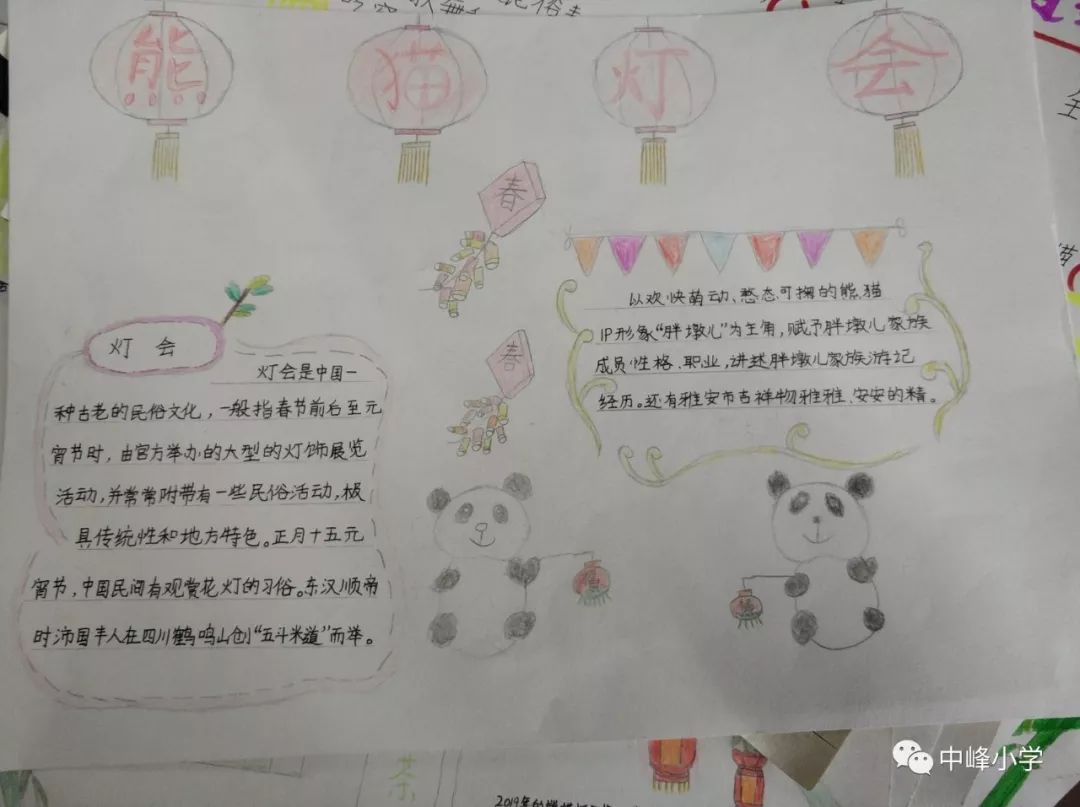 熊猫灯会
春
春
灯会
灯会是中国一
种古老的民俗文化，一般指春节前后至元
宵节时，由官方举办的大型的灯饰展览
活动，并常常附带有一些民俗活动，极
具传统性和地方特色。正月十五元
宵节，中国民间有观赏花灯的习俗。东汉顺帝
时沛国丰人在四川鹤鸣山创“五斗米道”而举。
以欢快萌动、憨态可掬的熊猫
IP形象“胖墩儿”为主角，赋予胖墩儿家族
成员性格、职业，讲述胖墩儿家族游记
经历。还有雅安市吉祥物雅雅、安安的精。
福
福
茶
中峰小学